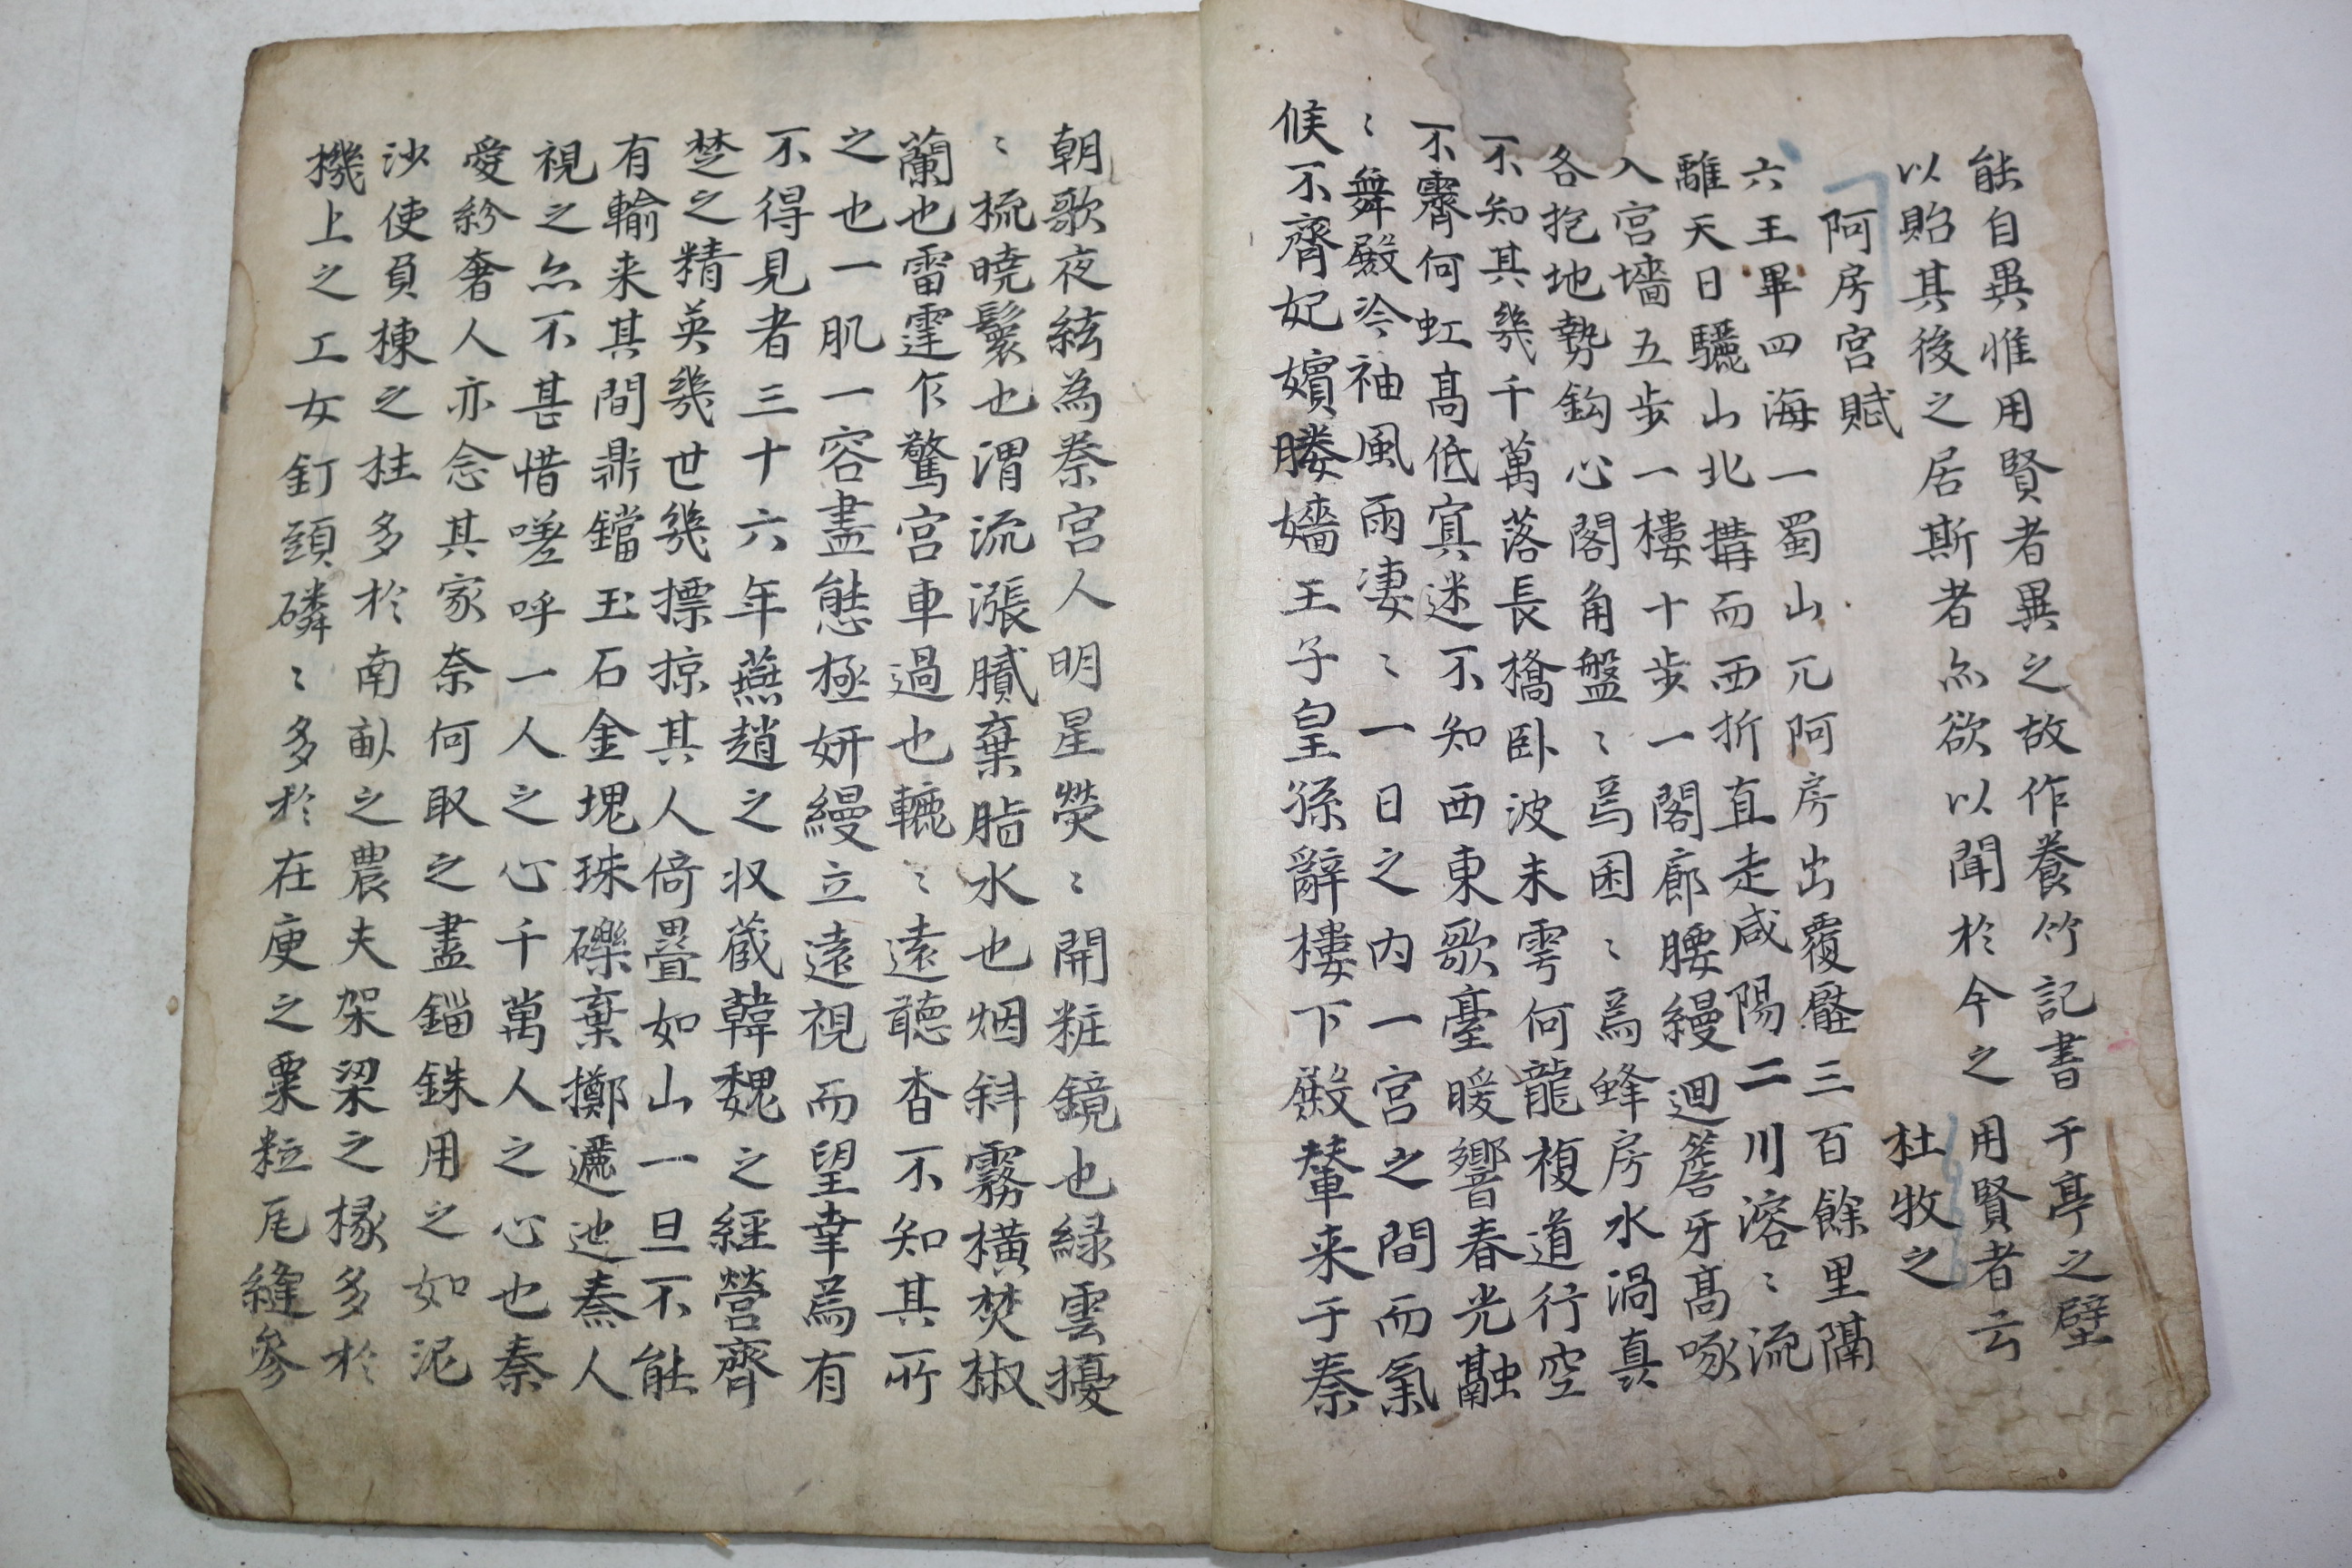 能自異惟用賢者異之故作養竹記書于亭之壁
以貽其後之居斯者亦欲以聞於今之用賢者云
阿房宮賦 杜牧之
六王畢四海一蜀山兀阿房出覆壓三百餘里隔
離天日驪山北搆而西折直走咸陽二川溶〻流
入宮墻五步一樓十步一閣廊腰縵迴簷牙高啄
各抱地勢鈎心閣角盤〻焉囷〻焉蜂房水渦真
不知其幾千萬落長橋卧波未雩何龍複道行空
不霽何虹高低冥迷不知西東歌臺暖響春光融
〻舞殿冷袖風雨凄〻一日之內一宮之間而氣
候不齊妃嬪媵嬙王子皇孫辭樓下殿輦来于秦
朝歌夜絃為秦宮人明星熒〻開粧鏡也緑雲擾
〻梳曉鬟也渭流漲膩棄脂水也烟斜霧橫焚椒
蘭也雷霆乍驚宮車過也轆〻遠聽杳不知其所
之也一肌一容盡態極妍縵立遠視而望幸焉有
不得見者三十六年燕趙之収蔵韓魏之經營齊
楚之精英幾世幾摽掠其人倚疊如山一旦不能
有輸来其間鼎鐺玉石金塊珠礫棄擲邐迆秦人
視之亦不甚惜嗟呼一人之心千萬人之心也秦
愛紛奢人亦念其家奈何取之盡錙銖用之如泥
沙使負棟之柱多於南畒之農夫架梁之椽多於
機上之工女釘頭磷〻多於在庾之粟粒尾縫參